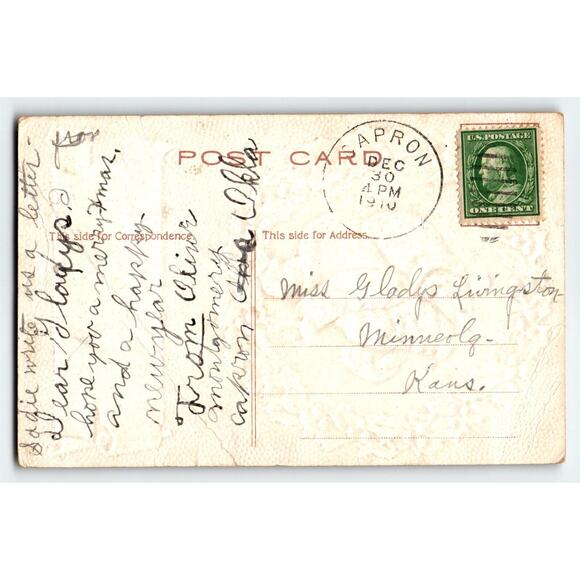 POST CARD
This side for Correspondence
This side for Address
CAPRON
DEC
30
4 PM
1910
U.S. POSTAGE
ONE CENT
Miss Gladys Livingston
Minneola
Kans.
Sadie write us a letter -
Dear Gladys.
hope you a merry xmas,
and a happy
new year
From Olive
montgomery
capron Okla